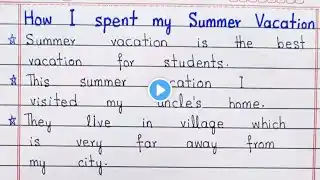 How I spent my Summer Vacation
☆ Summer vacation is the best
vacation for students.
☆ This summer cation I
visited my uncle's home.
☆ They live in village which
is very far away from
my city.